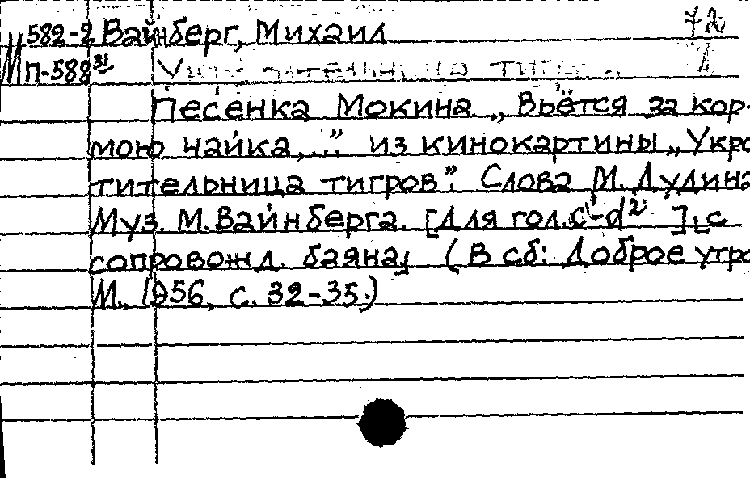 582-2 Вайнберг, Михаил 72
П-588 31 Укротительница тигров
Песенка Мокина „Вьётся за кор-
мою чайка..." из кинокартины „Укро
тительница тигров". Слова М. Дудина
Муз. М. Вайнберга. [Для гол. c¹-d² ] с
сопровожд. баяна, (В сб: Доброе утро
М., 1956, с. 32-35.)